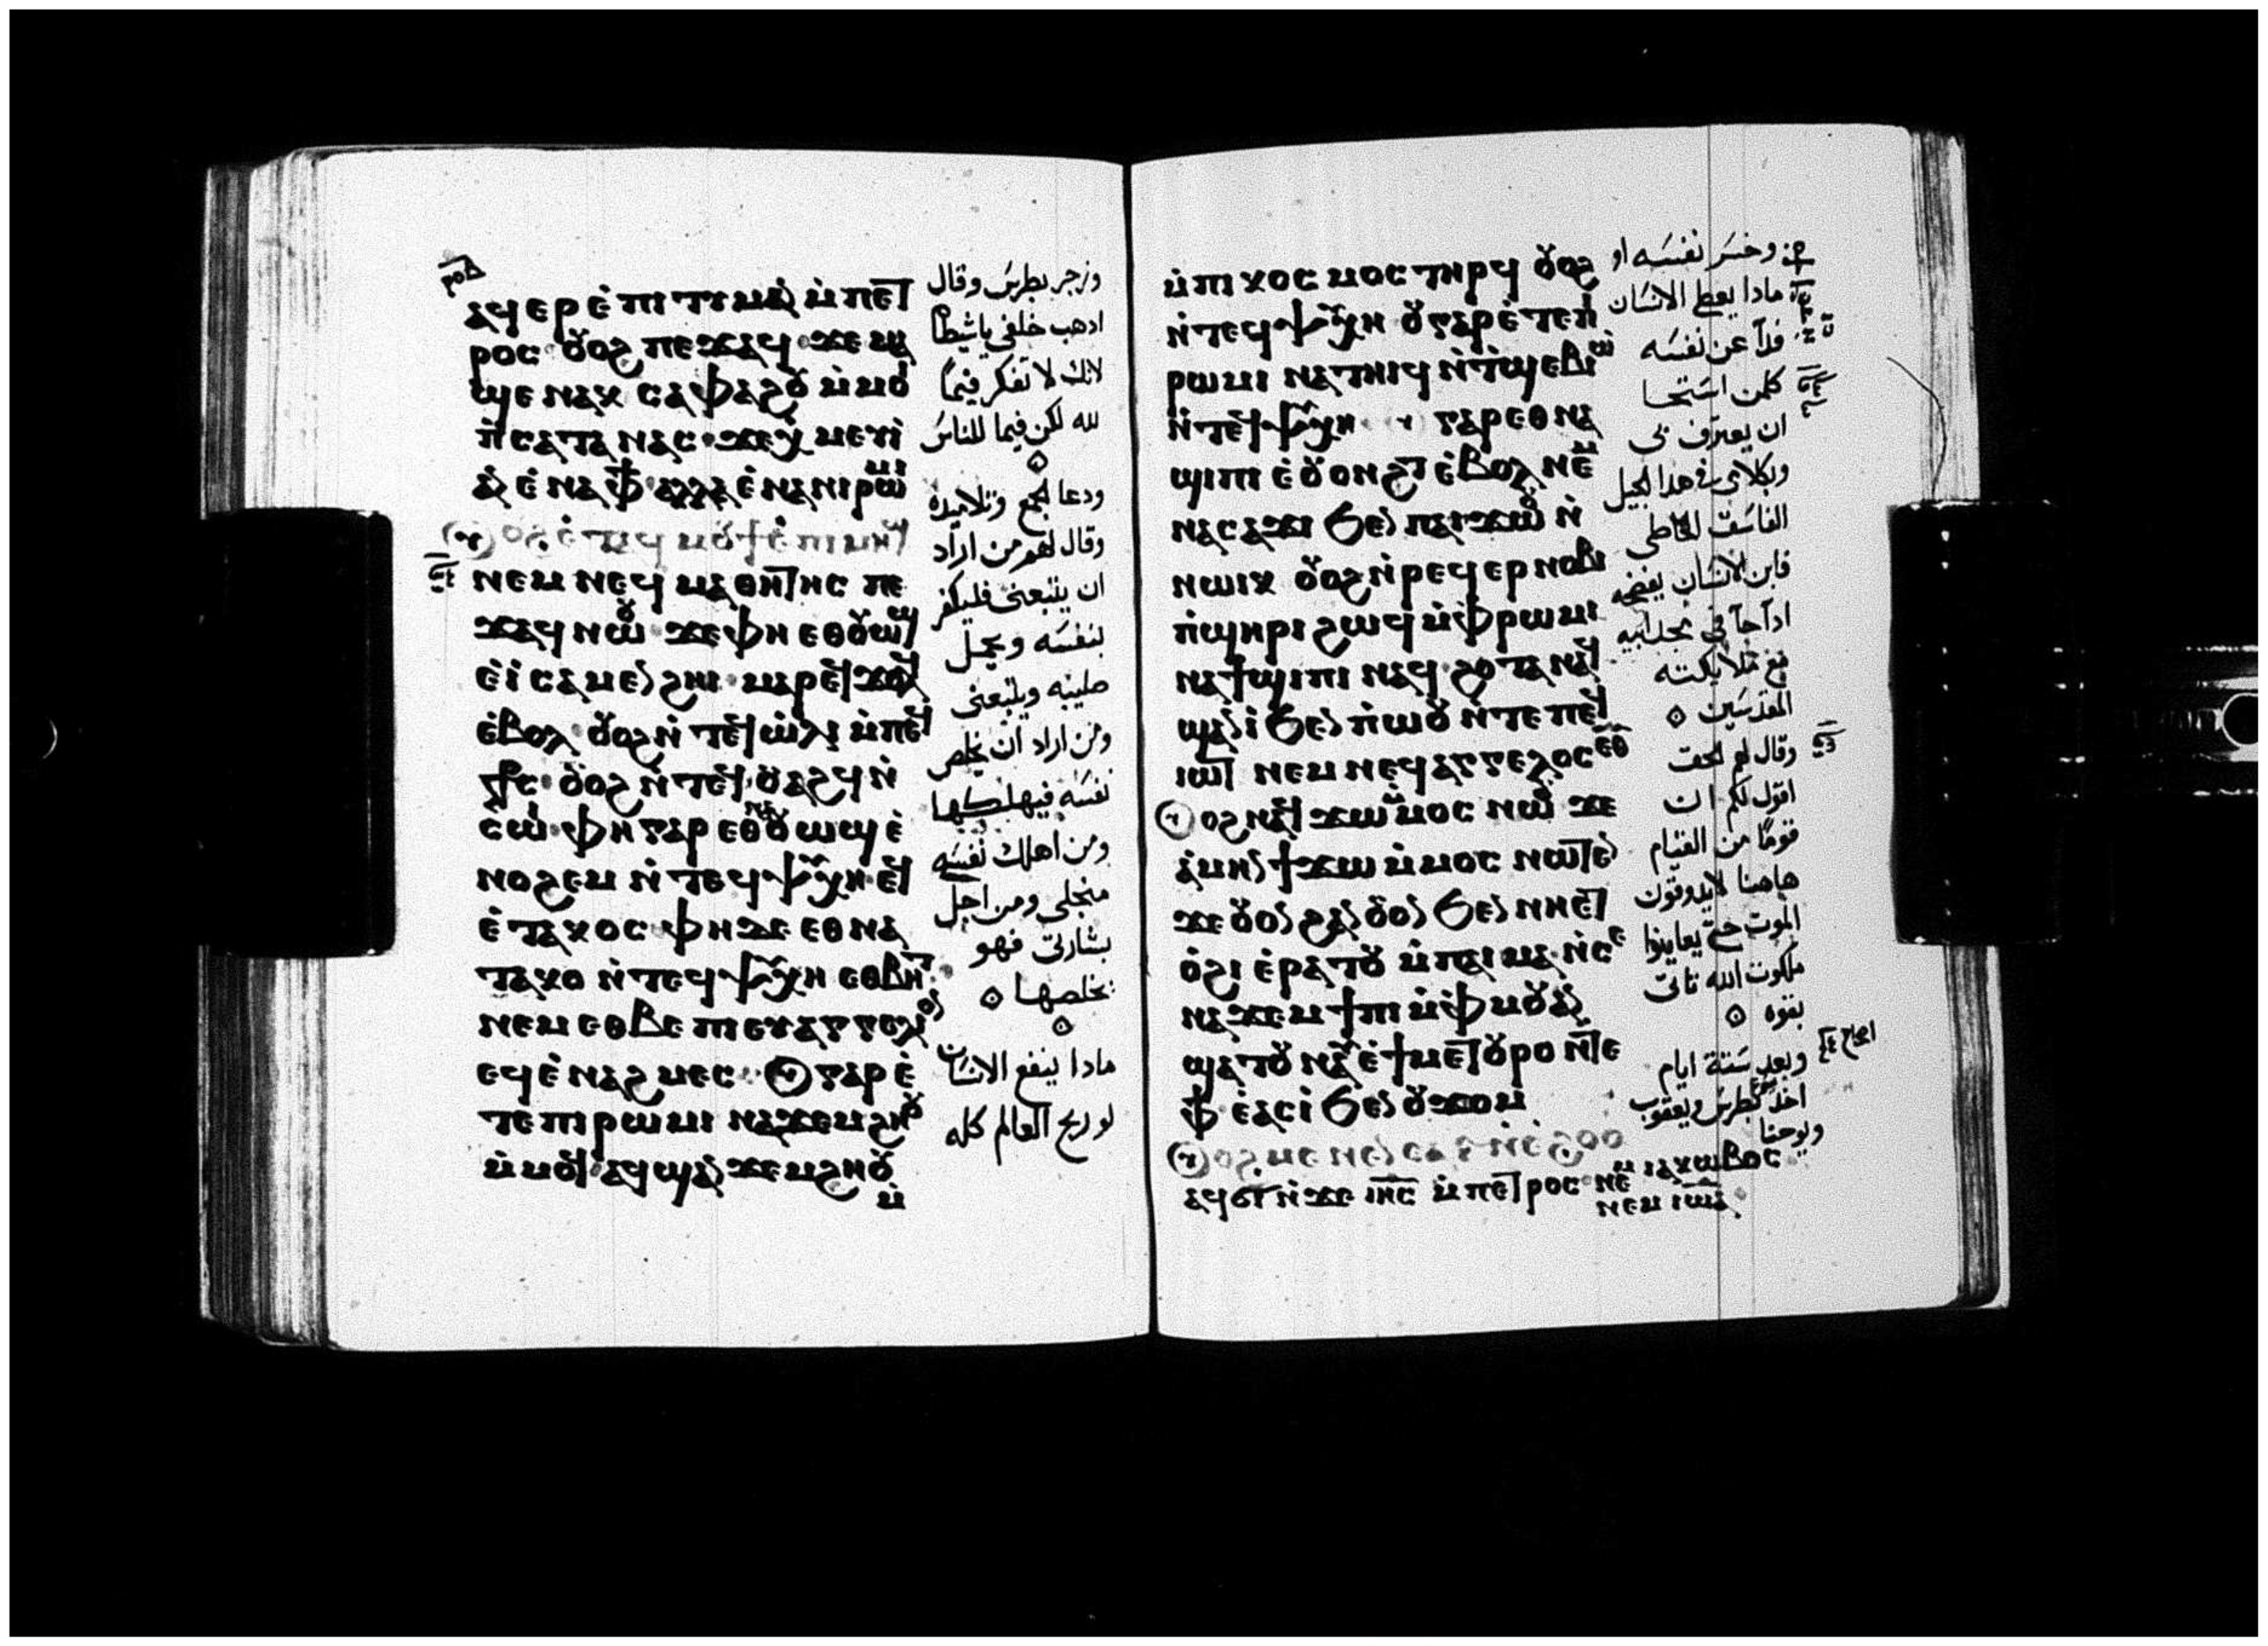 ⲣⲟⲇ
ⲁϥⲉⲣ ⲉ̇ⲡⲓⲧⲓⲙⲁⲛ ⲙ̇ⲡⲉⲧ
ⲣⲟⲥ ⲟⲩⲟϩ ⲡⲉϫⲁϥ ϫⲉ ⲙⲁ
ϣⲉ ⲛⲁⲕ ⲥⲁⲫⲁϩⲟⲩ ⲙ̇ⲙⲟⲓ
ⲡ̇ⲥⲁⲧⲁⲛⲁⲥ ϫⲉⲭ ⲙⲉⲩⲓ
ⲁⲛ ⲉ̇ⲛⲁⲫϯ ⲁⲗⲗⲁ ⲉ̇ⲛⲁⲛⲓⲣⲱⲙⲓ
ⲟϩ ⲉ̇ⲧⲁϥⲙⲟⲩϯ ⲉ̇ⲡⲓⲙⲏϣ
ⲛⲉⲙ ⲛⲉϥⲙⲁⲑⲏⲧⲏⲥ ⲡⲉ
ϫⲁϥ ⲛⲱⲟⲩ ϫⲉ ⲫⲏ ⲉⲑⲟⲩⲱϣ
ⲉ̇ⲓ̇ ⲥⲁⲙⲉⲛϩⲏⲓ ⲙⲁⲣⲉϥϫⲟⲗϥ
ⲉ̇ⲃⲟⲗ ⲟⲩⲟϩ ⲛ̇ⲧⲉϥⲱ̇ⲗⲓ ⲙ̇ⲡⲉϥ
ⲥ̅ⲧ̅ⲥ ⲟⲩⲟϩ ⲛ̇ⲧⲉϥⲟⲩⲁϩϥ ⲛ̇
ⲥⲱⲓ ⲫⲏ ⲅⲁⲣ ⲉⲑⲛⲁⲟⲩⲱϣ ⲉ̇
ⲛⲟϩⲉⲙ ⲛ̇ⲧⲉϥⲯⲩⲭⲏ ⲉϥ
ⲉ̇ⲧⲁⲕⲟⲥ ⲫⲏ ⲇⲉ ⲉⲑⲛⲁ
ⲧⲁⲕⲟ ⲛ̇ⲧⲉϥⲯⲩⲭⲏ ⲉⲑⲃⲏⲧ
ⲛⲉⲙ ⲉⲑⲃⲉ ⲡⲓⲉⲩⲁⲅⲅⲉⲗⲓⲟⲛ
ⲉϥⲉ̇ⲛⲁϩⲙⲉⲥ ⲟⲩ ⲅⲁⲣ ⲉ̇
ⲧⲉ ⲡⲓⲣⲱⲙⲓ ⲛⲁϫⲉⲙϩⲏⲟⲩ
ⲙ̇ⲙⲟϥ ⲁϥϣⲁⲛϫⲉⲙϩⲏⲟⲩ
ⲙ̇
وزجر بطرس وقال
ادهب خلفي ياشيطان
لانك لا تفكر فيما
لله لكن فيما للناس
ودعا الجمع وتلاميده
وقال لهم من اراد
ان يتبعنى فليكفر
بنفسه ويحمل
صليبه ويتبعنى
ومن اراد ان يخلص
نفسه فيهلكها
ومن اهلك نفسه
منجلى ومن اجل
بشارتى فهو
يخلصها
مادا ينفع الانسان
لو ربح العالم كله
ⲙ̇ⲡⲓⲕⲟⲥⲙⲟⲥ ⲧⲏⲣϥ ⲟⲩⲟϩ
ⲛ̇ⲧⲉϥⲯⲩⲭⲏ ⲟⲩ ⲅⲁⲣ ⲉ̇ⲧⲉ ⲡⲓ
ⲣⲱⲙⲓ ⲛⲁⲧⲏⲓϥ ⲛ̇ⲧϣⲉⲃⲓⲱ
ⲛ̇ⲧⲉϥⲯⲩⲭⲏ ⲅⲁⲣ ⲉⲑⲛⲁ
ϣⲓⲡⲓ ⲉ̇ⲟⲩⲟⲛϩⲧ ⲉ̇ⲃⲟⲗ ⲛⲉⲙ
ⲛⲁⲥⲁϫⲓ ϧⲉⲛ ⲡⲁⲓϫⲱⲟⲩ ⲛ̇
ⲛⲱⲓⲕ ⲟⲩⲟϩ ⲛ̇ⲣⲉϥⲉⲣⲛⲟⲃⲓ
ⲡ̇ϣⲏⲣⲓ ϩⲱϥ ⲙ̇ⲫⲣⲱⲙⲓ
ⲛⲁϯϣⲓⲡⲓ ⲛⲁϥ ϩⲟⲧⲁⲛ ⲁϥ
ϣⲁⲛⲓ̇ ϧⲉⲛ ⲡ̇ⲱⲟⲩ ⲛ̇ⲧⲉ ⲡⲉϥ
ⲓⲱⲧ ⲛⲉⲙ ⲛⲉϥⲁⲅⲅⲉⲗⲟⲥ ⲉⲑⲩ
ⲟϩ ⲛⲁϥϫⲱ ⲙ̇ⲙⲟⲥ ⲛⲱⲟⲩ ϫⲉ
ⲁ̇ⲙⲏⲛ ϯϫⲱ ⲙ̇ⲙⲟⲥ ⲛⲱⲧⲉⲛ
ϫⲉ ⲟⲩⲟⲛ ϩⲁⲛⲟⲩⲟⲛ ϧⲉⲛ ⲛⲏⲉⲧ
ⲟ̇ϩⲓ ⲉ̇ⲣⲁⲧⲟⲩ ⲙ̇ⲡⲁⲓⲙⲁ ⲛ̇ⲥⲉ
ⲛⲁϫⲉⲙϯⲡⲓ ⲙ̇ⲫⲙⲟⲩ ⲁⲛ
ϣⲁⲧⲟⲩⲛⲁⲩ ⲉ̇ϯⲙⲉⲧⲟⲩⲣⲟ ⲛ̇ⲧⲉ
ⲫϯ ⲉ̇ⲁⲥⲓ̇ ϧⲉⲛ ⲟⲩϫⲟⲙ
ⲟϩ ⲙⲉⲛⲉⲛⲥⲁ ⲋ ⲛ̇ⲉ̇ϩⲟⲟⲩ
ⲁϥϭⲓ ⲛ̇ϫⲉ ⲓⲏⲥ ⲙ̇ⲡⲉⲧⲣⲟⲥ ⲛⲉⲙ ⲓⲁⲕⲱⲃⲟⲥ
ⲛⲉⲙ ⲓⲱⲁ
وخسر نفسه او
مادا يعطى الانسان
فدآ عن نفسه
كلمن استحا
ان يعترف بى
وبكلامى فى هدا الجيل
الفاسق الخاطى
فابن الانسان يفضحه
ادا جآ فى مجد ابيه
مع ملايكته
المقدسين
وقال لهم الحق
اقول لكم ان
قوما من القيام
هاهنا لايدوقون
الموت حتى يعاينوا
ملكوت الله تاتى
بقوه
وبعد ستة ايام
اخد يسوع بطرس ويعقوب
ويوحنا